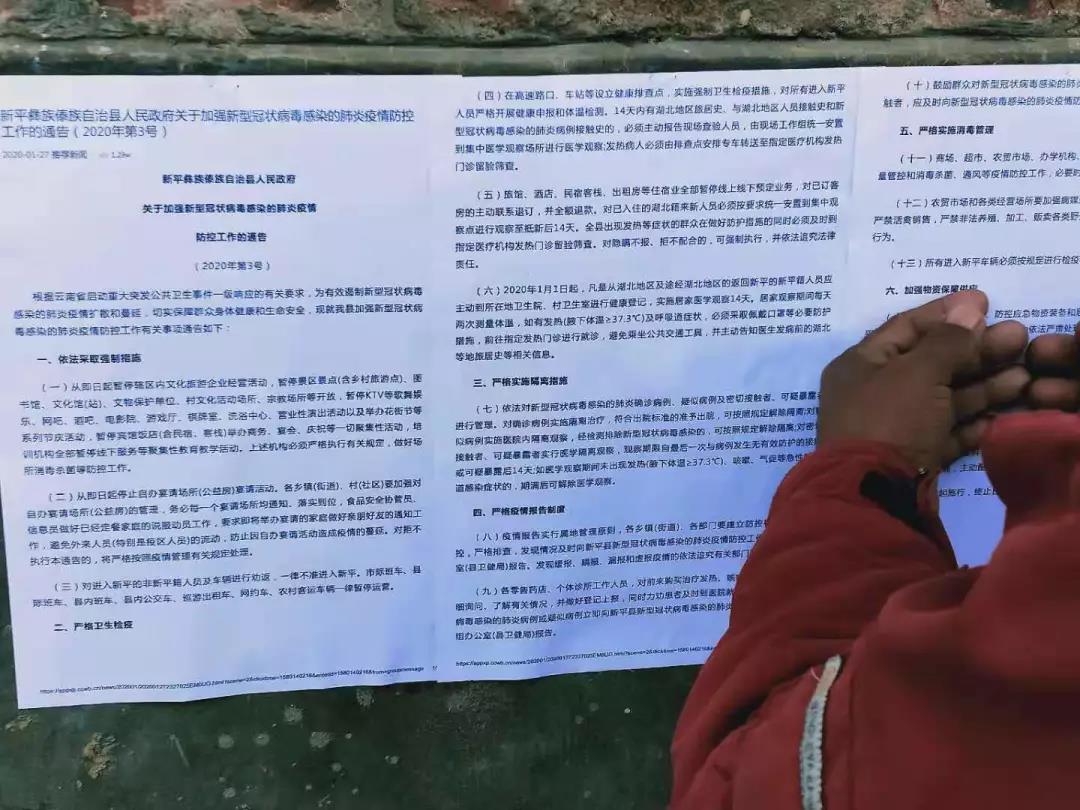 新平彝族傣族自治县人民政府关于加强新型冠状病毒感染的肺炎疫情防控
工作的通告（2020年第3号）
2020-01-27 推荐新闻 1.2w
新平彝族傣族自治县人民政府
关于加强新型冠状病毒感染的肺炎疫情
防控工作的通告
（2020年第3号）
根据云南省启动重大突发公共卫生事件一级响应的有关要求，为有效遏制新型冠状病毒
感染的肺炎疫情扩散和蔓延，切实保障群众身体健康和生命安全，现就我县加强新型冠状病
毒感染的肺炎疫情防控工作有关事项通告如下：
一、依法采取强制措施
（一）从即日起暂停辖区内文化旅游企业经营活动，暂停景区景点(含乡村旅游点)、图
书馆、文化馆(站)、文物保护单位、村文化活动场所、宗教场所等开放，暂停KTV等歌舞娱
乐、网吧、酒吧、电影院、游戏厅、棋牌室、洗浴中心、营业性演出活动以及举办花街节等
系列节庆活动，暂停宾馆饭店(含民宿、客栈)举办商务、宴会、庆祝等一切聚集性活动，培
训机构全部暂停线下服务等聚集性教育教学活动。上述机构必须严格执行有关规定，做好场
所消毒杀菌等防控工作。
（二）从即日起停止自办宴请场所(公益房)宴请活动。各乡镇(街道)、村(社区)要加强对
自办宴请场所(公益房)的管理，务必每一个宴请场所均通知、落实到位，食品安全协管员、
信息员做好已经定餐家庭的说服动员工作，要求即将举办宴请的家庭做好亲朋好友的通知工
作，避免外来人员(特别是疫区人员)的流动，防止因自办宴请活动造成疫情的蔓延。对拒不
执行本通告的，将严格按照疫情管理有关规定处理。
（三）对进入新平的非新平籍人员及车辆进行劝返，一律不准进入新平。市际班车、县
际班车、县内班车、县内公交车、巡游出租车、网约车、农村客运车辆一律暂停运营。
二、严格卫生检疫
（四）在高速路口、车站等设立健康排查点，实施强制卫生检疫措施，对所有进入新平
人员严格开展健康申报和体温检测。14天内有湖北地区旅居史、与湖北地区人员接触史和新
型冠状病毒感染的肺炎病例接触史的，必须主动报告现场查验人员，由现场工作组统一安置
到集中医学观察场所进行医学观察;发热病人必须由排查点安排专车转送至指定医疗机构发热
门诊留验筛查。
（五）旅馆、酒店、民宿客栈、出租房等住宿业全部暂停线上线下预定业务，对已订客
房的主动联系退订，并全额退款。对已入住的湖北籍来新人员必须按要求统一安置到集中观
察点进行观察至抵新后14天。全县出现发热等症状的群众在做好防护措施的同时必须及时到
指定医疗机构发热门诊留验筛查。对隐瞒不报、拒不配合的，可强制执行，并依法追究法律
责任。
（六）2020年1月1日起，凡是从湖北地区及途经湖北地区的返回新平的新平籍人员应
主动到所在地卫生院、村卫生室进行健康登记，实施居家医学观察14天。居家观察期间每天
两次测量体温，如有发热(腋下体温≥37.3℃)及呼吸道症状，必须采取佩戴口罩等必要防护
措施，前往指定发热门诊进行就诊，避免乘坐公共交通工具，并主动告知医生发病前的湖北
等地旅居史等相关信息。
三、严格实施隔离措施
（七）依法对新型冠状病毒感染的肺炎确诊病例、疑似病例及密切接触者、可疑暴露者
进行管理。对确诊病例实施隔离治疗，符合出院标准的准予出院，可按照规定解除隔离;对
似病例实施医院内隔离观察，经检测排除新型冠状病毒感染的，可按照规定解除隔离;对密
接触者、可疑暴露者实行医学隔离观察，观察期限自最后一次与病例发生无有效防护的接
或可疑暴露后14天;如医学观察期间未出现发热(腋下体温≥37.3℃)、咳嗽、气促等急性
道感染症状的，期满后可解除医学观察。
四、严格疫情报告制度
（八）疫情报告实行属地管理原则，各乡镇(街道)、各部门要建立防控
控，严格排查，发现情况及时向新平县新型冠状病毒感染的肺炎疫情防控工
室(县卫健局)报告。发现缓报、瞒报、漏报和虚报疫情的依法追究有关部门
（九）各零售药店、个体诊所工作人员，对前来购买治疗发热、咳
细询问、了解有关情况，并做好登记上报，同时力劝患者及时到医院就
毒感染的肺炎病例或疑似病例立即向新平县新型冠状病毒感
组办公室(县卫健局)报告。
（十）鼓励群众对新型冠状病毒感染的肺
触者，应及时向新型冠状病毒感染的肺炎疫情防
五、严格实施消毒管理
（十一）商场、超市、农贸市场、办学机构、
量管控和消毒杀菌、通风等疫情防控工作，必要时
（十二）农贸市场和各类经营场所要加强病媒
严禁活禽销售，严禁非法养殖、加工、贩卖各类野
行为。
（十三）所有进入新平车辆必须按规定进行检疫
六、加强物资保障供应
防控应急物资装备和